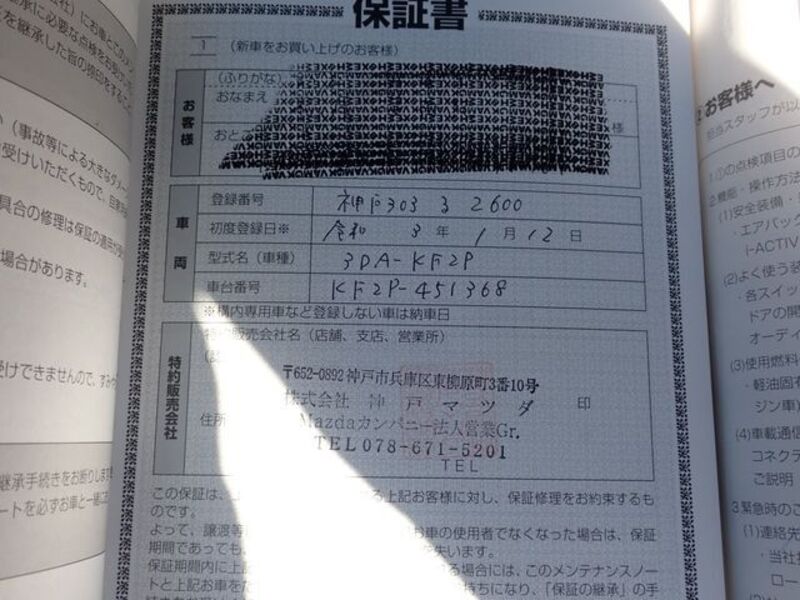 保証書
1 (新車をお買い上げのお客様)
お客様
(ふりがな)
おなまえ
様
車両
登録番号 神戸303 る 2600
初度登録日※ 令和 3年 1月 12日
型式名(車種) 3DA-KF2P
車台番号 KF2P-451368
※構内専用車など登録しない車は納車日
特約販売会社
特約販売会社名(店舗、支店、営業所)
〒652-0892 神戸市兵庫区東柳原町3番10号
株式会社 神戸マツダ 印
住所
Mazdaカンパニー法人営業Gr.
TEL 078-671-5201
TEL
この保証は、
上記お客様に対し、保証修理をお約束するも
のです。
よって、譲渡等に
お車の使用者でなくなった場合は、保証
期間であっても、
失います。
保証期間内に上記
る場合には、このメンテナンスノー
トと上記お車をた
持ちになり、「保証の継承」の手
(事故等による大きなダメー
受けいただくもので、
具合の修理は保証の適用が受
場合があります。
受けできませんので、
継承手続きをお断りします
ートを必ずお車と一緒に
お客様へ
担当スタッフが以
1.①の点検項目の
2.機能・操作方法
(1)安全装備・
・エアバック
i-ACTIV
(2)よく使う装
・各スイッ
ドアの開
オーディ
(3)使用燃料
・軽油固有
ジン車)
(4)車載通信
コネクテ
ご説明
3.緊急時のご
(1)連絡先
・当社お
ロー